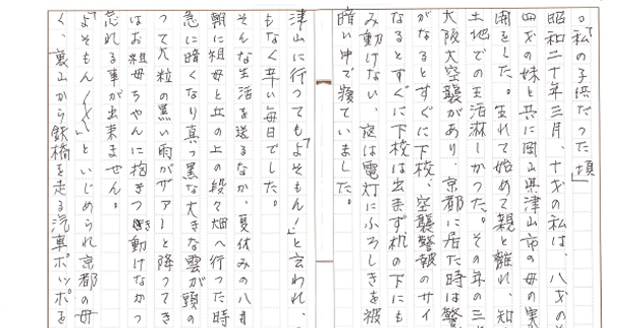 ○「私の子供だった頃」
昭和二十年三月、十才の私は、八才の
四才の妹と共に岡山県津山市の母の実
開をした。生れて始めて親と離れ、知
土地での生活淋しかった。その年の三
大阪大空襲があり、京都に居た時は警
がなるとすぐに下校、空襲警報のサイ
なるとすぐに下校は出来ず机の下にも
み動けない、夜は電灯にふろしきを被
暗い中で寝ていました。
津山に行っても「よそもん！」と言われ、
もなく辛い毎日でした。
そんな生活を送るなか、夏休みの八月
朝に祖母と丘の上の段々畑へ行った時
急に暗くなり真っ黒な大きな雲が頭の
って大粒の黒い雨がザァーと降ってき
はお祖母ちゃんに抱きつき動けなかっ
忘れる事が出来ません。
「よそもん！」といじめられ京都の母
く、裏山から鉄橋を走る汽車ポッポを